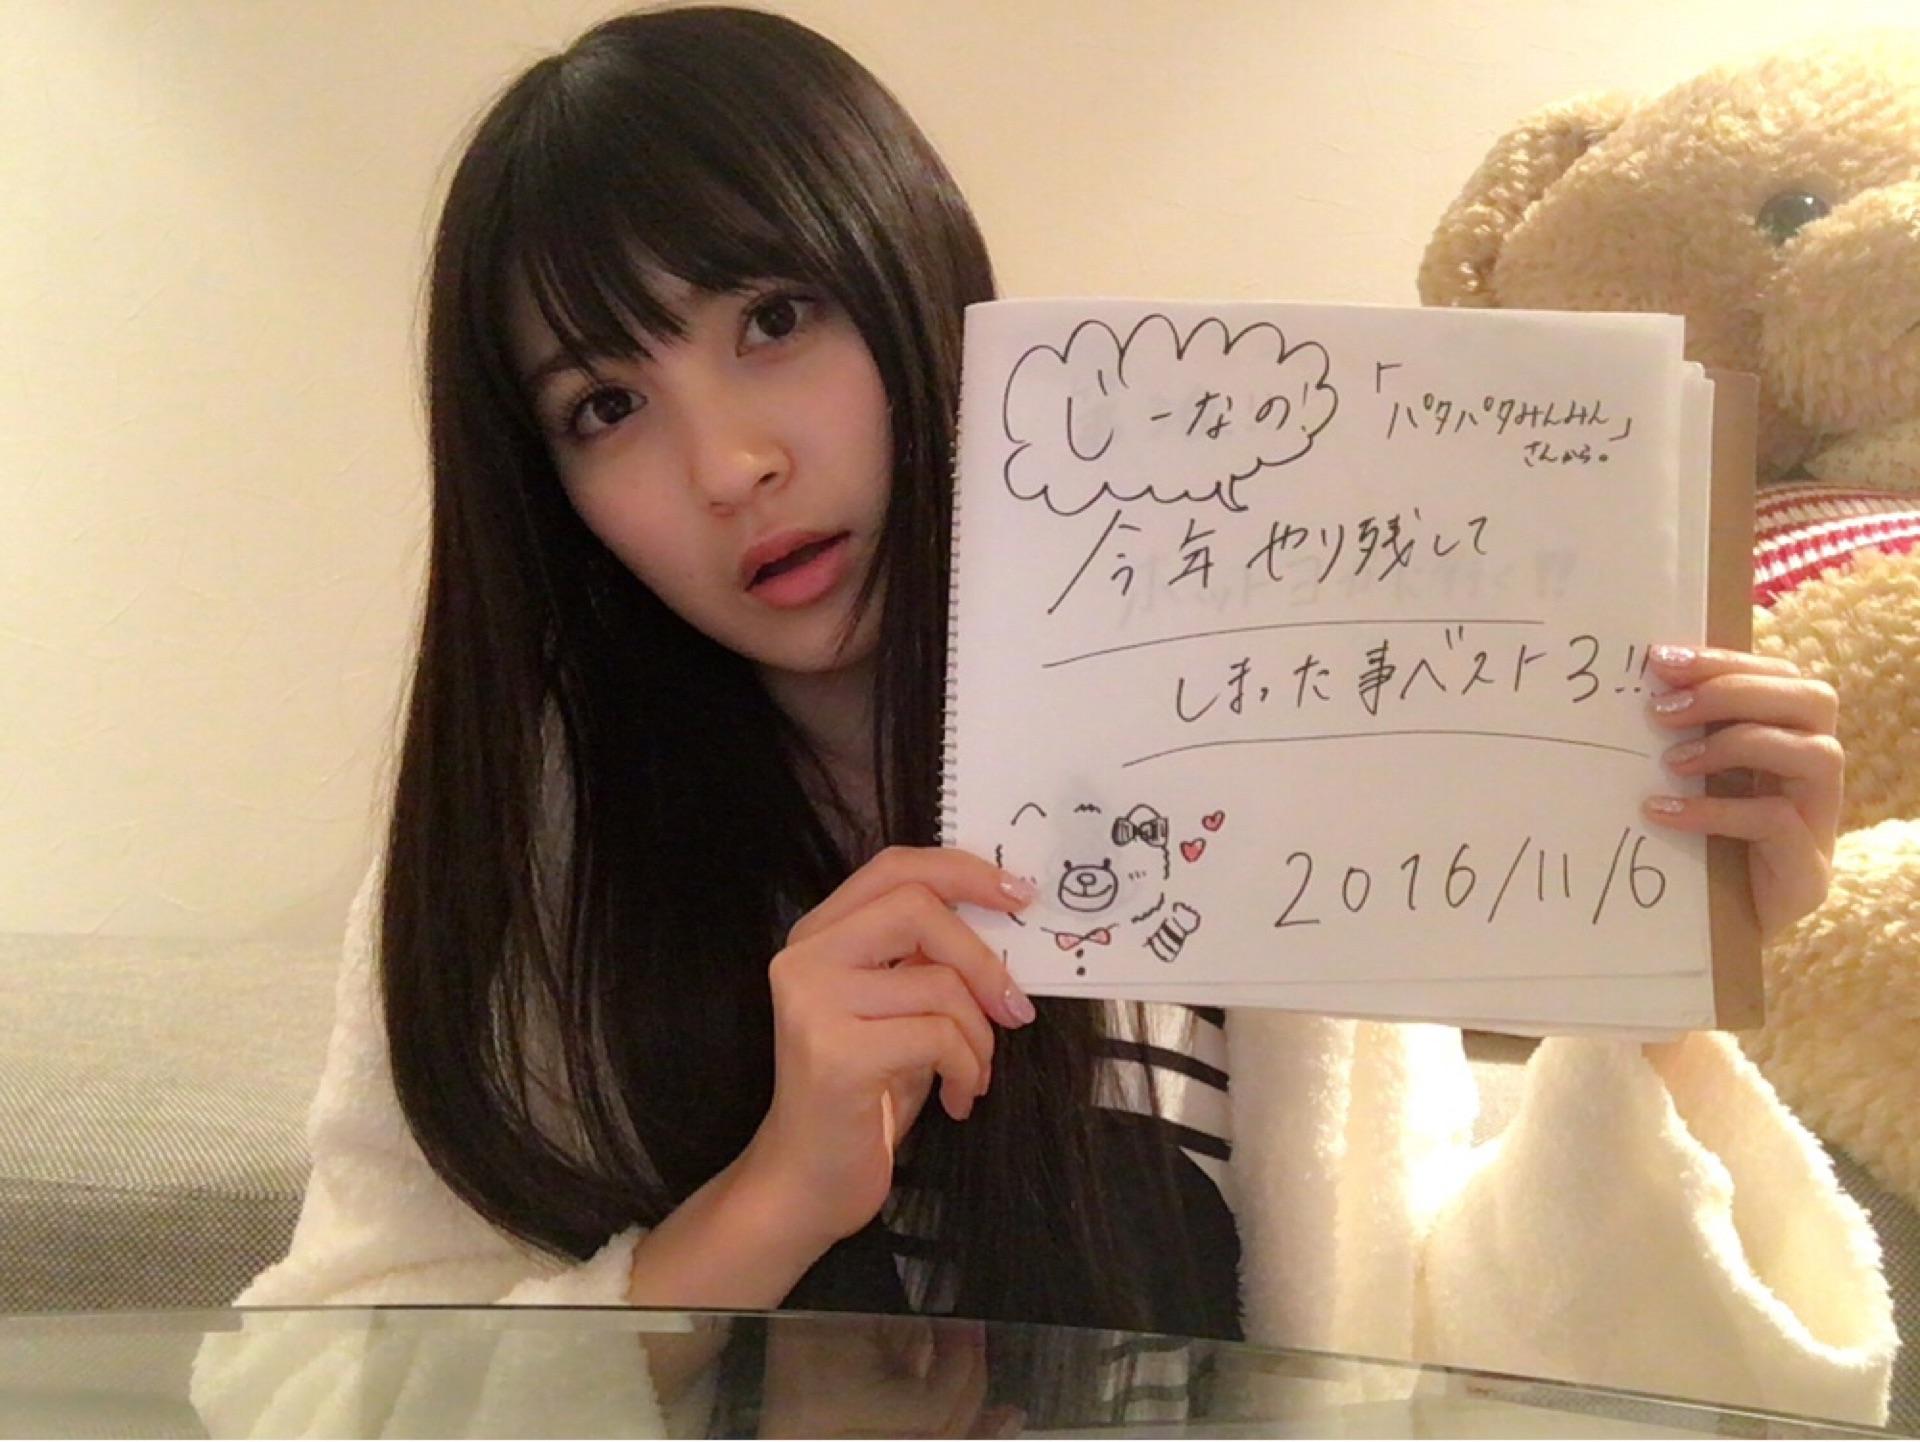 じーなの!
「パタパタみんみん」
さんから。
今年やり残して
しまった事ベスト3!!
2016/11/6